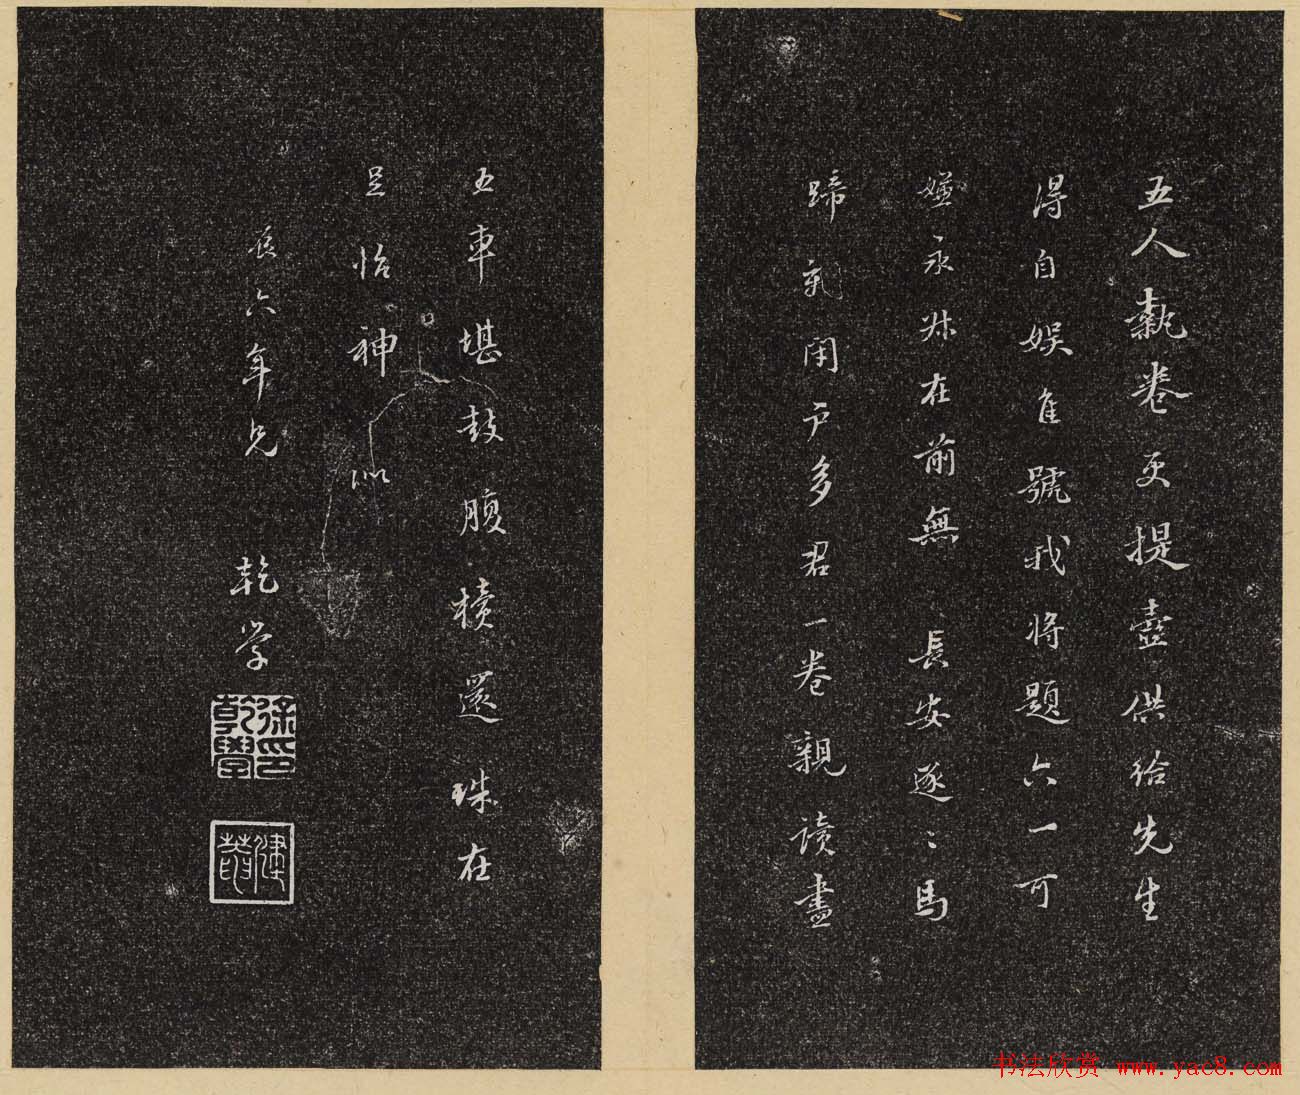 五人執卷更提壺供給先生
得自娛佳號我將題六一可
嫌永叔在前無 長安逐〻馬
蹄亂閉戶多君一卷親讀盡
五車堪鼓腹櫝還珠在
足怡神 似
辰六年兄 乾學
徐乾學印
健菴
书法欣赏 www.yac8.com